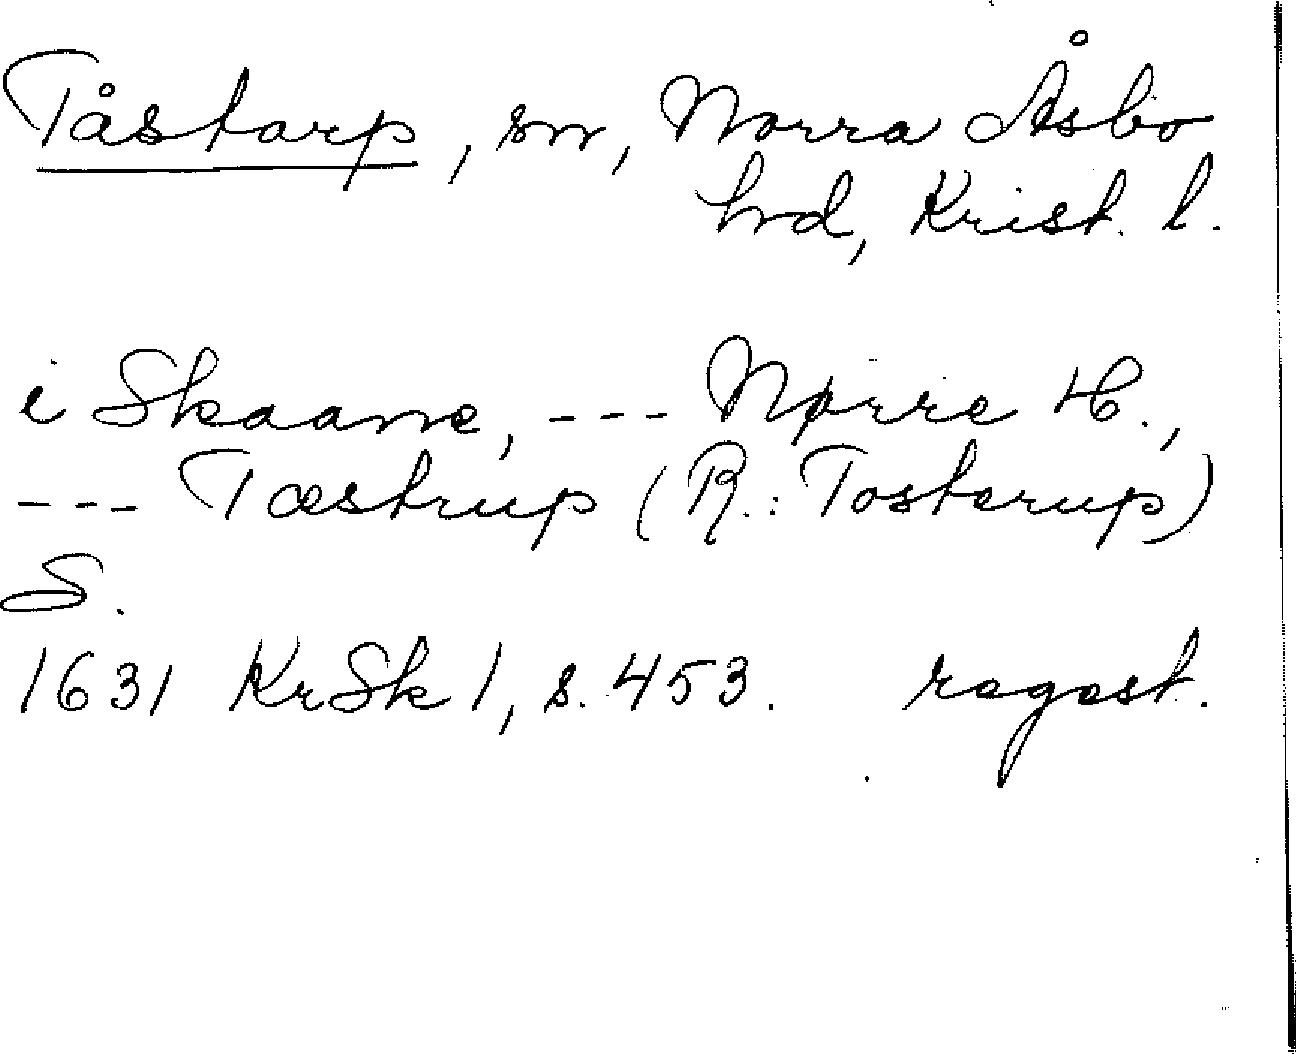 Tåstarp, sn, Norra Åsbo
hrd, Krist. l.
i Skaane, --- Nørre H.,
--- Tæstrup (R.: Tosterup)
S.
1631 KrSk 1, s. 453. regest.